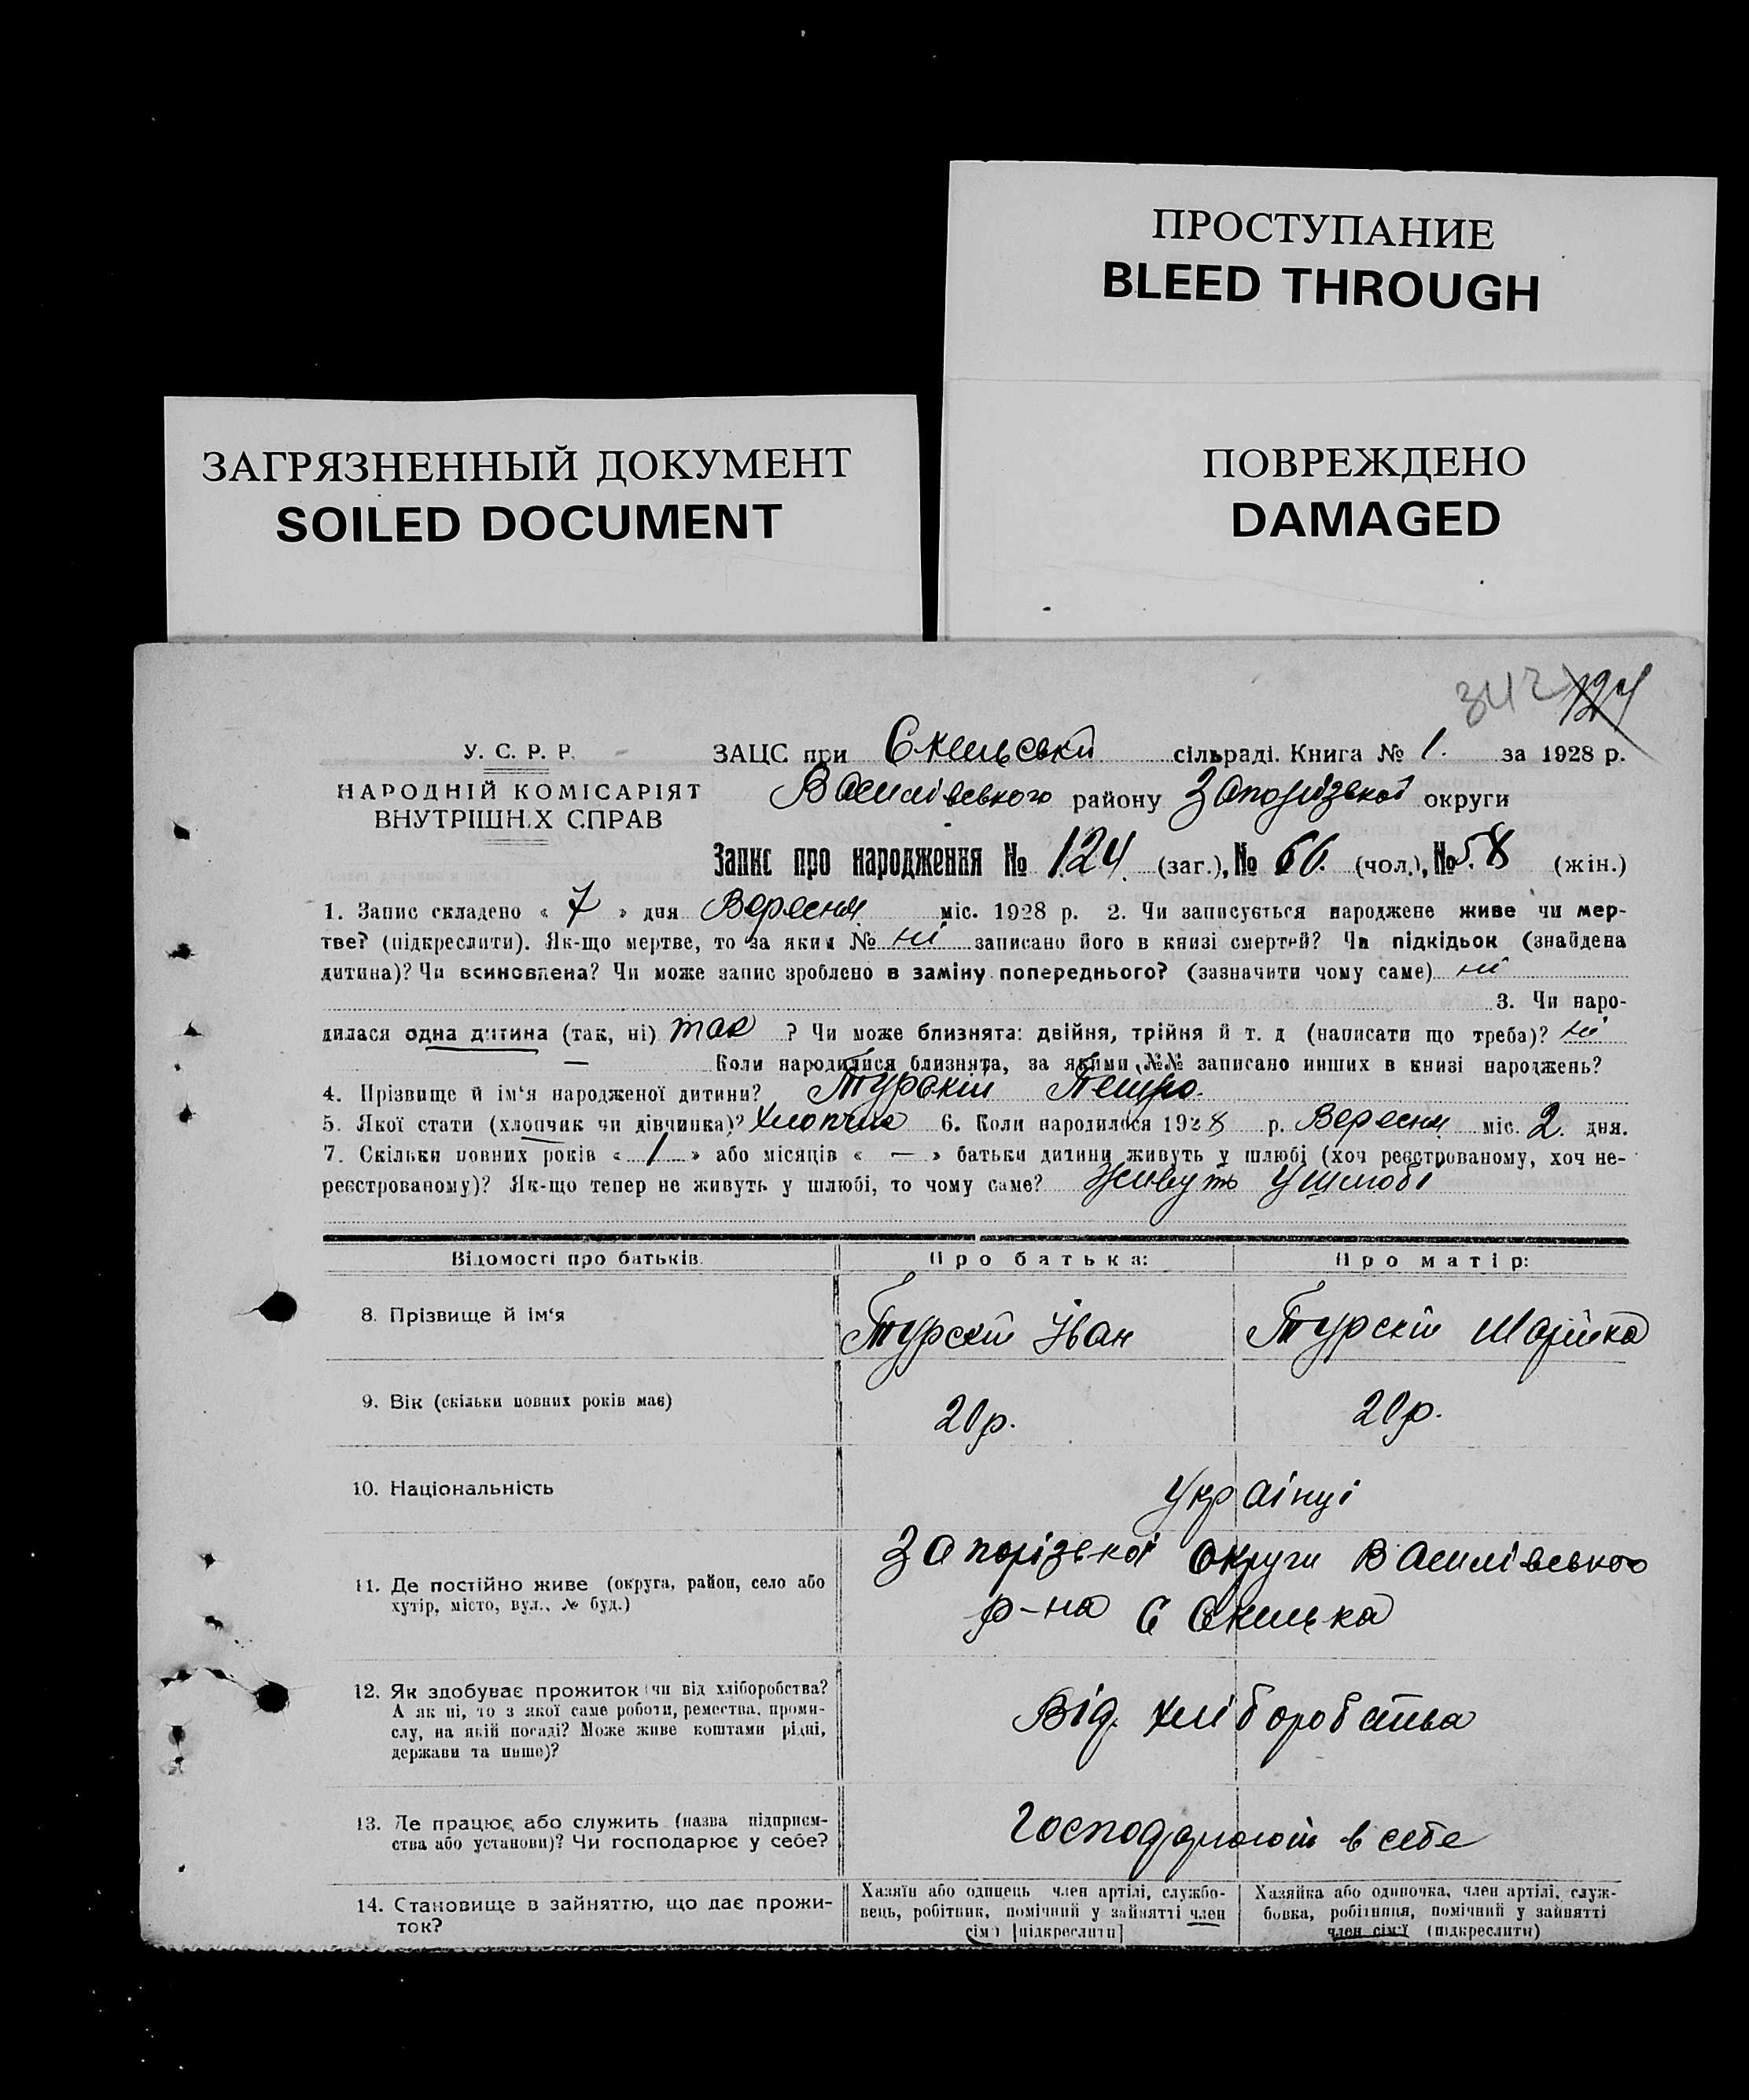 ПРОСТУПАНИЕ
BLEED THROUGH
ЗАГРЯЗНЕННЫЙ ДОКУМЕНТ
SOILED DOCUMENT
ПОВРЕЖДЕНО
DAMAGED
342 124
У. С. Р. Р.
НАРОДНІЙ КОМІСАРІЯТ
ВНУТРІШН.Х СПРАВ
ЗАЦС при Скельській сільраді. Книга № 1. за 1928 р.
Василівського району Запорізької округи
Запис про народження № 124. (заг.), № 66. (чол.), № 58 (жін.)
1. Запис складено « 7 » дня Вересня міс. 1928 р. 2. Чи записується народжене живе чи мер-
тве? (підкреслити). Як-що мертве, то за яким № ні записано його в книзі смертей? Чи підкідьок (знайдена
дитина)? Чи всиновлена? Чи може запис зроблено в заміну попереднього? (зазначити чому саме) ні
3. Чи наро-
дилася одна дитина (так, ні) так ? Чи може близнята: двійня, трійня й т. д (написати що треба)? ні
— Коли народилися близнята, за якими №№ записано инших в книзі народжень?
4. Прізвище й ім'я народженої дитини? Турскій Петро.
5. Якої стати (хлопчик чи дівчинка)? Хлопчик 6. Коли народилося 1928 р. Вересня міс. 2. дня.
7. Скільки повних років « 1 » або місяців « — » батьки дитини живуть у шлюбі (хоч реєстрованому, хоч не-
реєстрованому)? Як-що тепер не живуть у шлюбі, то чому саме? Живуть у шлюбі
Відомості про батьків. Про батька: Про матір:
8. Прізвище й ім'я Турскій Іван Турскій Марійка
9. Вік (скільки повних років має) 20 р. 20 р.
10. Національність Українці
11. Де постійно живе (округа, район, село або
хутір, місто, вул., № буд.)
Запорізької округи Василівського
р-на С Скилька
12. Як здобуває прожиток (чи від хліборобства?
А як ні, то з якої саме роботи, ремества, проми-
слу, на якій посаді? Може живе коштами рідні,
держави та инше)?
Від. хліборобства
13. Де працює або служить (назва підприєм-
ства або установи)? Чи господарює у себе?
Господарюють в себе
14. Становище в зайняттю, що дає прожи-
ток?
Хазяїн або одинець член артілі, службо-
вець, робітник, помічний у зайнятті член
сім'ї [підкреслити]
Хазяйка або одиночка, член артілі, служ-
бовка, робітниця, помічний у зайнятті
член сім'ї (підкреслити)